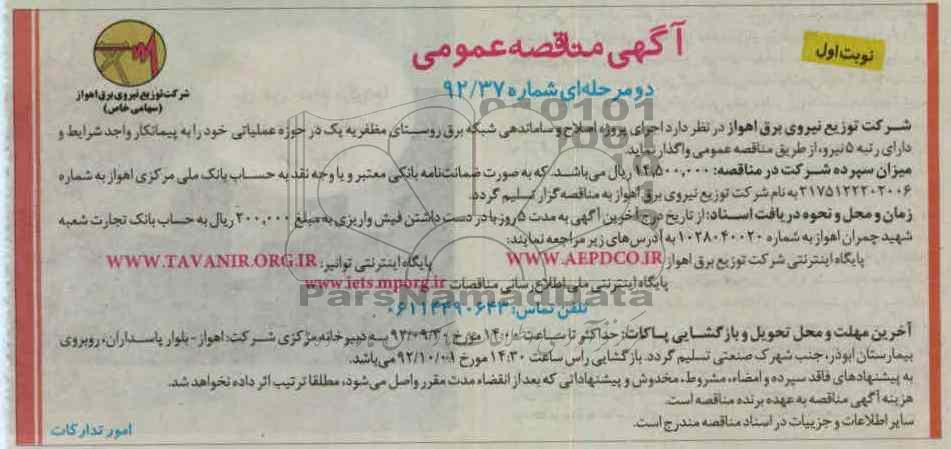 آگهی مناقصه عمومی
نوبت اول
دو مرحله‌ای شماره ۹۲/۳۷
شرکت توزیع نیروی برق اهواز
(سهامی خاص)
شرکت توزیع نیروی برق اهواز در نظر دارد اجرای پروژه اصلاح و ساماندهی شبکه برق روستای مظفریه یک در حوزه عملیاتی خود را به پیمانکار واجد شرایط و
دارای رتبه ۵ نیرو، از طریق مناقصه عمومی واگذار نماید.
میزان سپرده شرکت در مناقصه: ۱۴,۵۰۰,۰۰۰ ریال می‌باشد. که به صورت ضمانت‌نامه بانکی معتبر و یا وجه نقد به حساب بانک ملی مرکزی اهواز به شماره
۲۱۷۵۱۲۲۲۰۲۰۰۶ به نام شرکت توزیع نیروی برق اهواز به مناقصه‌گزار تسلیم گردد.
زمان و محل و نحوه دریافت اسناد: از تاریخ درج آخرین آگهی به مدت ۵ روز با در دست داشتن فیش واریزی به مبلغ ۲۰۰,۰۰۰ ریال به حساب بانک تجارت شعبه
شهید چمران اهواز به شماره ۱۰۲۸۰۴۰۰۲۰ به آدرس‌های زیر مراجعه نمایند:
پایگاه اینترنتی شرکت توزیع برق اهواز WWW.AEPDCO.IR پایگاه اینترنتی توانیر: WWW.TAVANIR.ORG.IR
پایگاه اینترنتی ملی اطلاع رسانی مناقصات www.iets.mporg.ir
ParsNamadData
تلفن تماس: ۰۶۱۱۴۴۹۰۶۴۳
آخرین مهلت و محل تحویل و بازگشایی پاکات: حداکثر تا ساعت ۱۴:۰۰ مورخ ۹۲/۰۹/۳۰ به دبیرخانه مرکزی شرکت: اهواز - بلوار پاسداران، روبروی
بیمارستان ابوذر، جنب شهرک صنعتی تسلیم گردد. بازگشایی راس ساعت ۱۴:۳۰ مورخ ۹۲/۱۰/۰۱ می‌باشد.
به پیشنهادهای فاقد سپرده و امضاء، مشروط، مخدوش و پیشنهاداتی که بعد از انقضاء مدت مقرر واصل می‌شود، مطلقا ترتیب اثر داده نخواهد شد.
هزینه آگهی مناقصه به عهده برنده مناقصه است.
سایر اطلاعات و جزییات در اسناد مناقصه مندرج است.
امور تدارکات